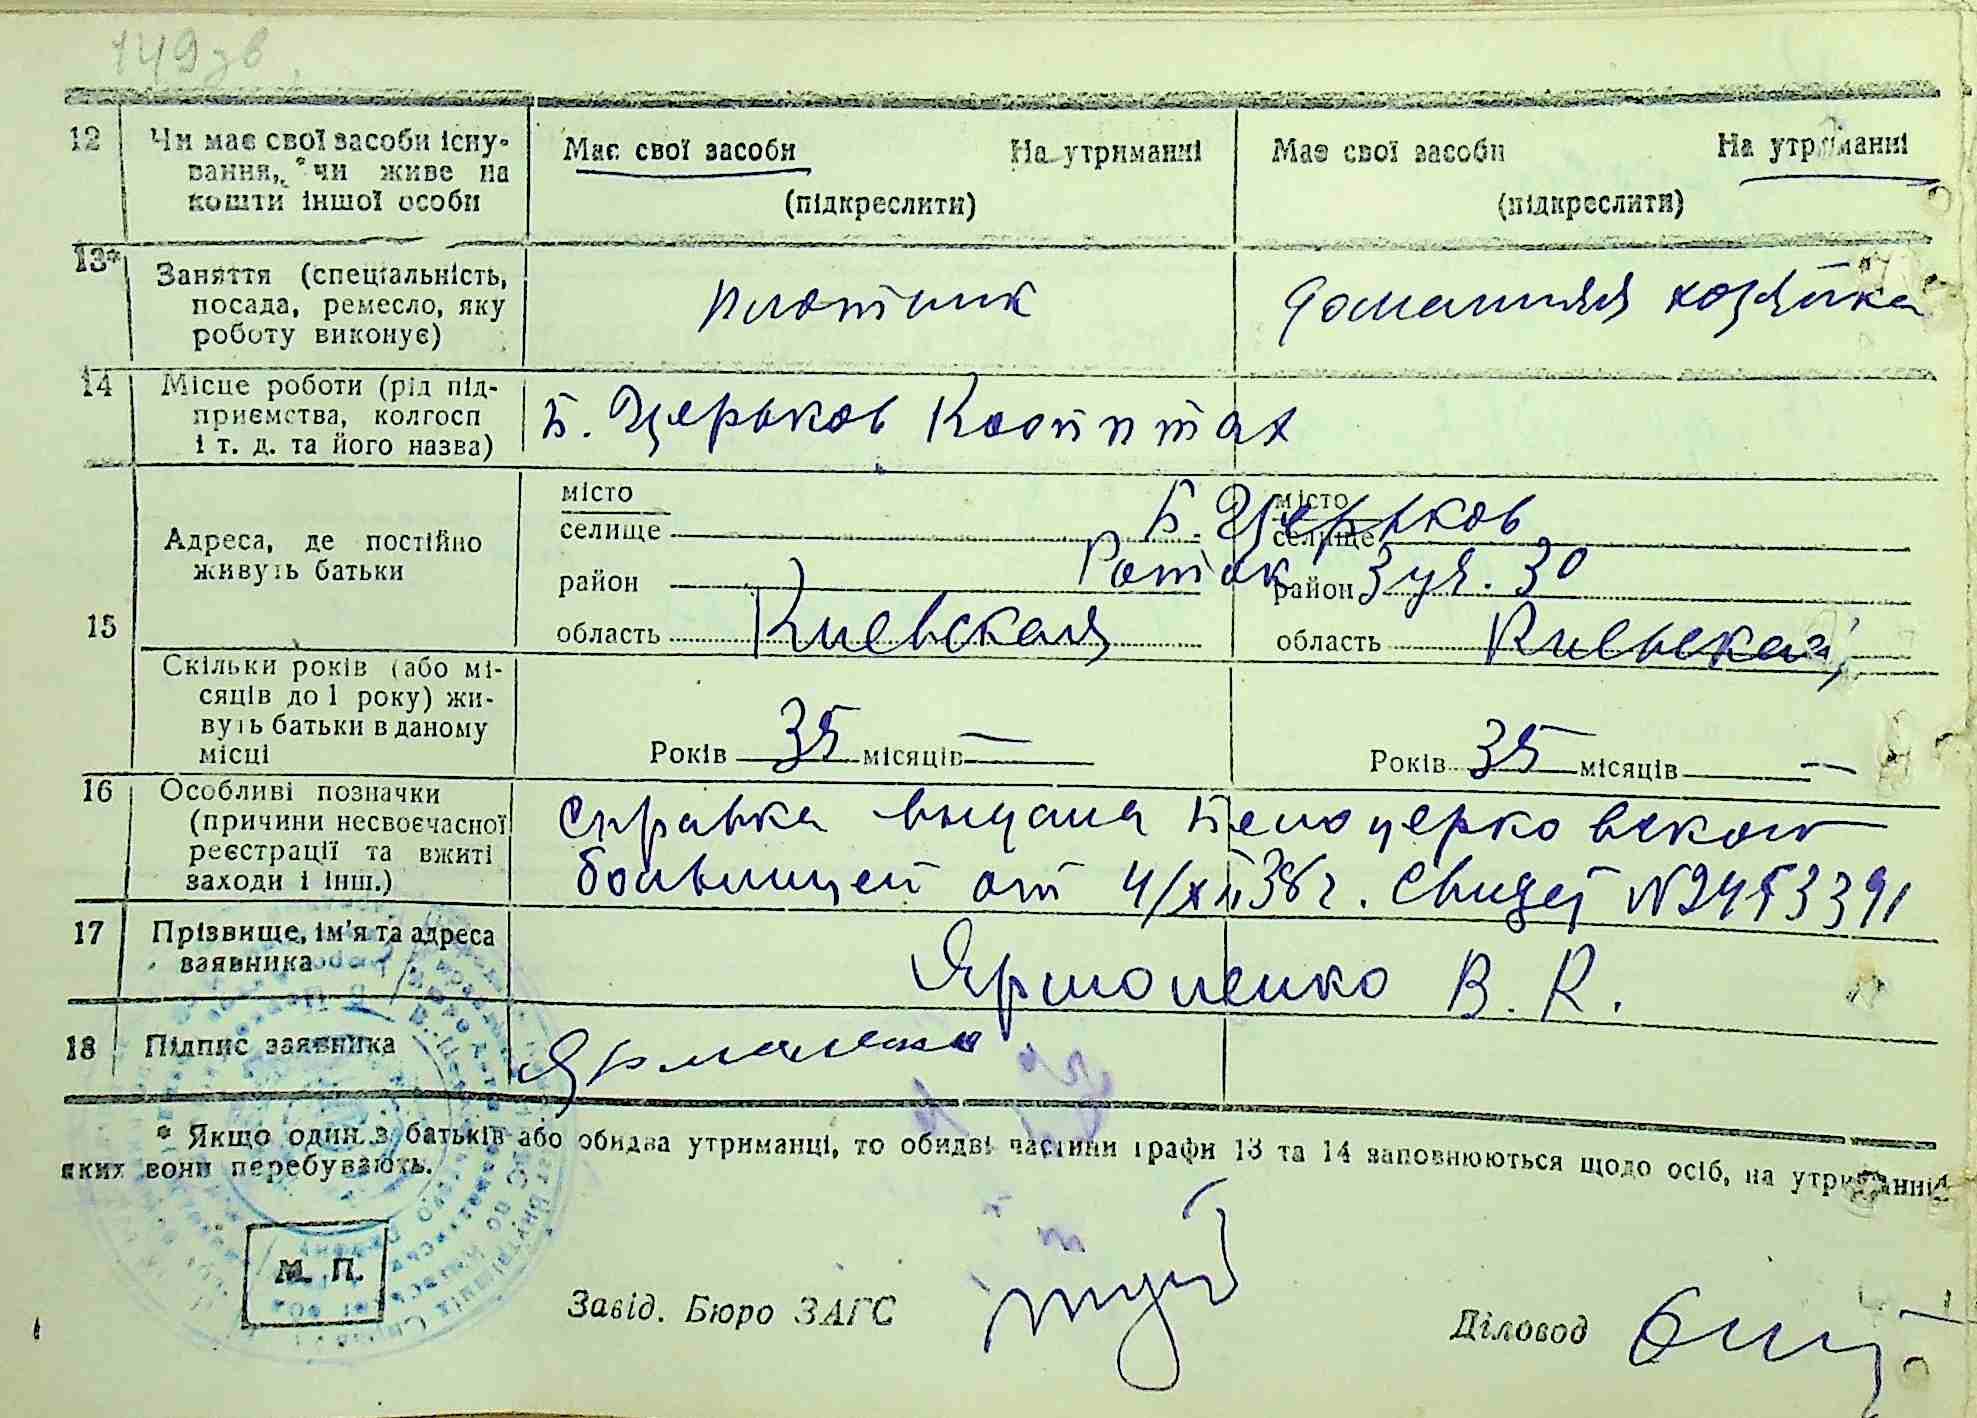 149 зв
12 Чи має свої засоби існу-
вання, чи живе на
кошти іншої особи
Має свої засоби На утриманні
(підкреслити)
Має свої засоби На утриманні
(підкреслити)
13* Заняття (спеціальність,
посада, ремесло, яку
роботу виконує)
плотник
домашняя хозяйка
14 Місце роботи (рід під-
приємства, колгосп
і т. д. та його назва)
Б. Церьков
15 Адреса, де постійно
живуть батьки
місто
селище
район
область Киевская
місто Б. Церьков
селище
район 3 30
область Киевская
Скільки років (або мі-
сяців до 1 року) жи-
вуть батьки в даному
місці
Років 35 місяців —
Років 35 місяців —
16 Особливі позначки
(причини несвоєчасної
реєстрації та вжиті
заходи і інш.)
Справка выдана Белоцерковской
больницей от 4/XII 38 г. Свидет №
17 Прізвище, ім’я та адреса
заявника
Ярмоленко В. К.
18 Підпис заявника
Ярмоленко
* Якщо один з батьків або обидва утриманці, то обидві частини графи 13 та 14 заповнюються щодо осіб, на утриманні
яких вони перебувають.
М. П.
Завід. Бюро ЗАГС
Діловод